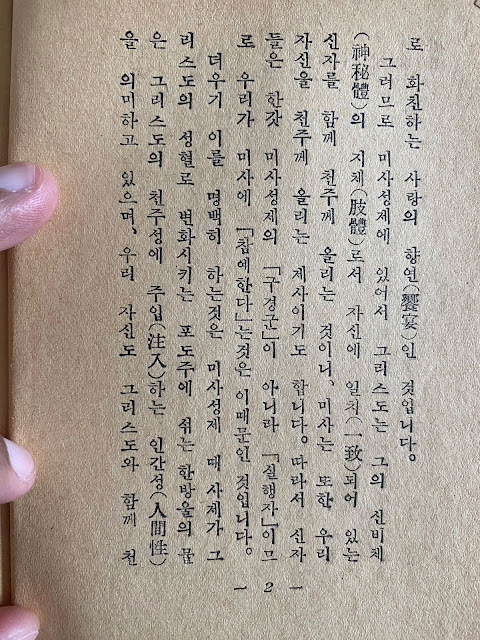 로 화친하는 사랑의 향연(饗宴)인 것입니다.
그러므로 미사성제에 있어서 그리스도는 그의 신비체
(神秘體)의 지체(肢體)로서 자신에 일치(一致)되어 있는
신자를 함께 천주께 올리는 것이니, 미사는 또한 우리
자신을 천주께 올리는 제사이기도 합니다. 따라서 신자
들은 한갓 미사성제의 「구경군」이 아니라 「실행자」이므
로 우리가 미사에 「참예한다」는것은 이때문인 것입니다.
더우기 이를 명백히 하는것은 미사성제 때 사제가 그
리스도의 성혈로 변화시키는 포도주에 섞는 한방울의 물
은 그리스도의 천주성에 주입(注入)하는 인간성(人間性)
을 의미하고 있으며, 우리 자신도 그리스도와 함께 천
— 2 —